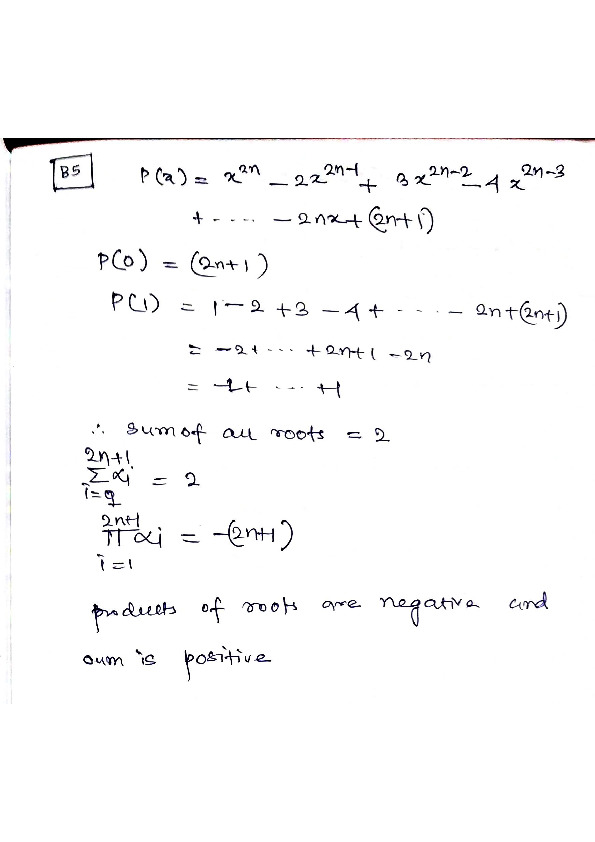 B5
P(x) = x^{2n} - 2x^{2n-1} + 3x^{2n-2} - 4x^{2n-3}
+ ---- - 2nx + (2n+1)
P(0) = (2n+1)
P(1) = 1 - 2 + 3 - 4 + ---- - 2n + (2n+1)
= -2 + ---- + 2n+1 - 2n
= -1 + ---- +1
∴ Sum of all roots = 2
\sum_{i=9}^{2n+1} αi = 2
\prod_{i=1}^{2n+1} αi = -(2n+1)
products of roots are negative and
sum is positive